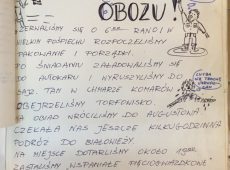 OBOZU!
ZERWALIŚMY SIĘ O 6:00 RANO I W
WIELKIM POŚPIECHU ROZPOCZĘLIŚMY
PAKOWANIE I PORZĄDKI.
PO ŚNIADANIU ZAŁADOWALIŚMY SIĘ
DO AUTOKARU I WYRUSZYLIŚMY DO
TAM W CHMARZE KOMARÓW
OBEJRZELIŚMY TORFOWISKO.
NA OBIAD WRÓCILIŚMY DO AUGUSTOWA.
CZEKAŁA NAS JESZCZE KILKUGODZINNA
PODRÓŻ DO BIAŁOWIEŻY
NA MIEJSCE DOTARLIŚMY OKOŁO
ZASTALIŚMY WSPANIAŁE PIĘCIOGWIAZDKOWE